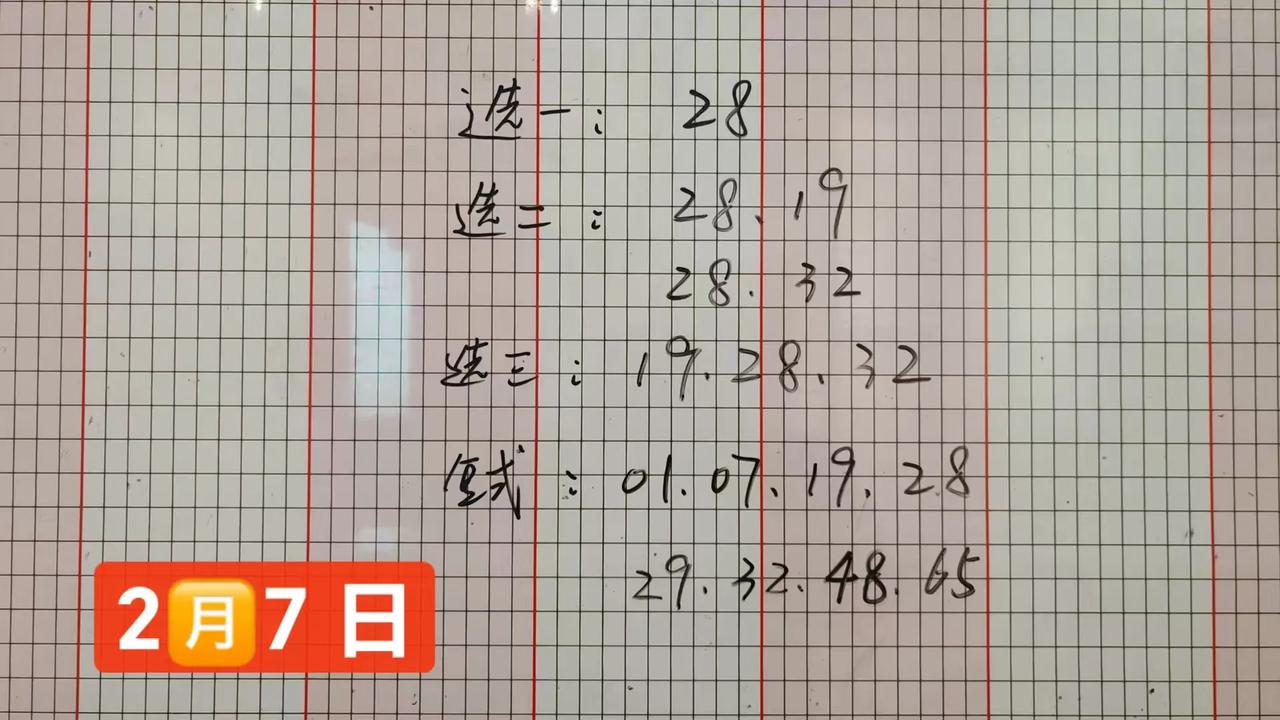 选一: 28
选二: 28.19
28.32
选三: 19.28.32
复式: 01.07.19.28
29.32.48.65
2月7日